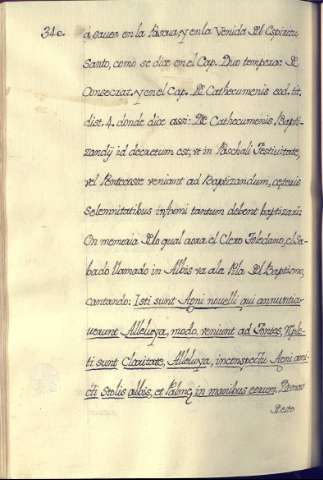 340.
á saver en la Pascua, y en la Venida del Espiritu
Santo, como se dice en el Cap. Duo tempora: de
Consecrat. y en el Cap. de Cathecumenis eod. tit.
dist. 4. donde dice assi: De Cathecumenis Bapti-
zandis id decretum est, ut in Paschali Festivitate,
vel Pentecoste veniant ad Baptizandum, ceteris
Solemnitatibus infirmi tantum debent baptizari.
En memoria de lo qual aora el Clero Toledano, el Sa-
bado llamado in Albis va a la Pila del Baptismo,
cantando: Isti sunt Agni novelli qui annuntia-
verunt Alleluya, modo, veniunt ad Fontes, Reple-
ti sunt Claritate, Alleluya, in conspectu Agni ami-
cti Stolis albis, et Palmę in manibus eorum.